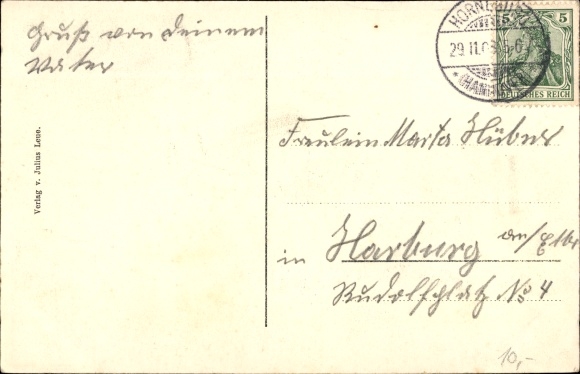 Gruß von Deinem
Vater
Verlag v. Julius Leue.
HORNEBURG
29.11.08
(HANNOVER)
5 5
DEUTSCHES REICH
Fräulein Marta Hübner
in Harburg an/Elbe
Rudolfplatz No 4
10,-